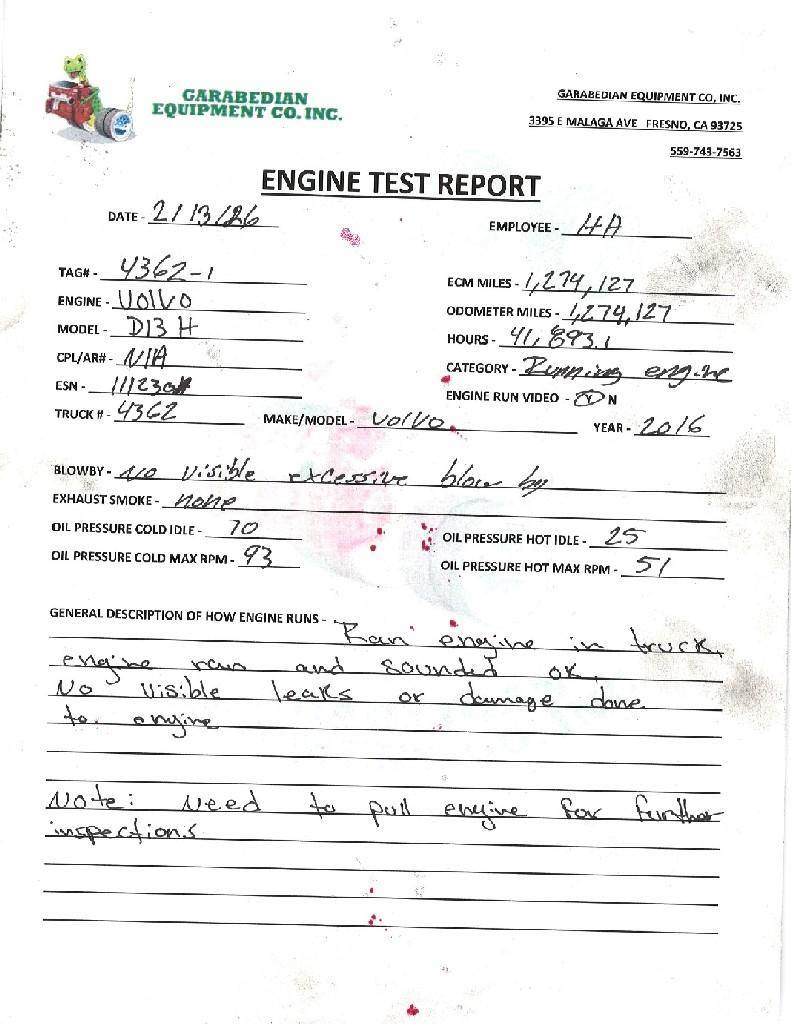 GARABEDIAN
EQUIPMENT CO. INC.
GARABEDIAN EQUIPMENT CO, INC.
3395 E MALAGA AVE FRESNO, CA 93725
559-743-7563
ENGINE TEST REPORT
DATE - 2/13/26
EMPLOYEE - HA
TAG# - 4362-1
ECM MILES - 1,274,127
ENGINE - VOLVO
ODOMETER MILES - 1,274,127
MODEL - D13 H
HOURS - 41,893.1
CPL/AR# - N/A
CATEGORY - Running engine
ESN -
ENGINE RUN VIDEO - Y N
TRUCK # - 4362
MAKE/MODEL - VOLVO
YEAR - 2016
BLOWBY - No visible excessive blow by
EXHAUST SMOKE - none
OIL PRESSURE COLD IDLE - 70
OIL PRESSURE HOT IDLE - 25
OIL PRESSURE COLD MAX RPM - 93
OIL PRESSURE HOT MAX RPM - 51
GENERAL DESCRIPTION OF HOW ENGINE RUNS - Ran engine in truck,
engine ran and sounded ok,
No visible leaks or damage done
to engine
Note: Need to pull engine for further
inspections